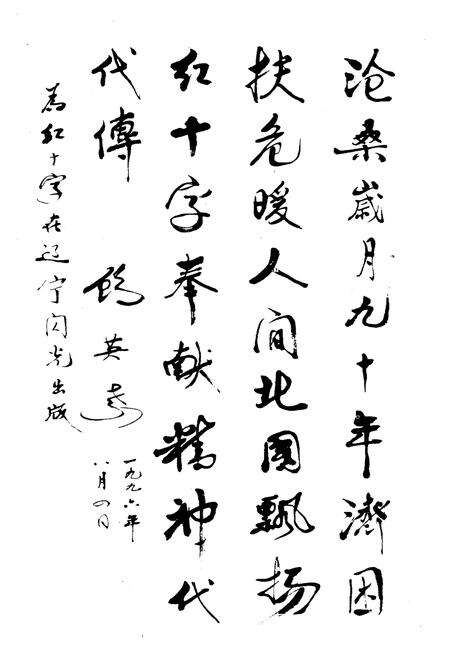 沧桑岁月九十年濟困
扶危暖人间北國飘扬
红十字奉献精神代
代傳
顾英奇
一九九六年
八月四日
為红十字在辽宁闪光出版